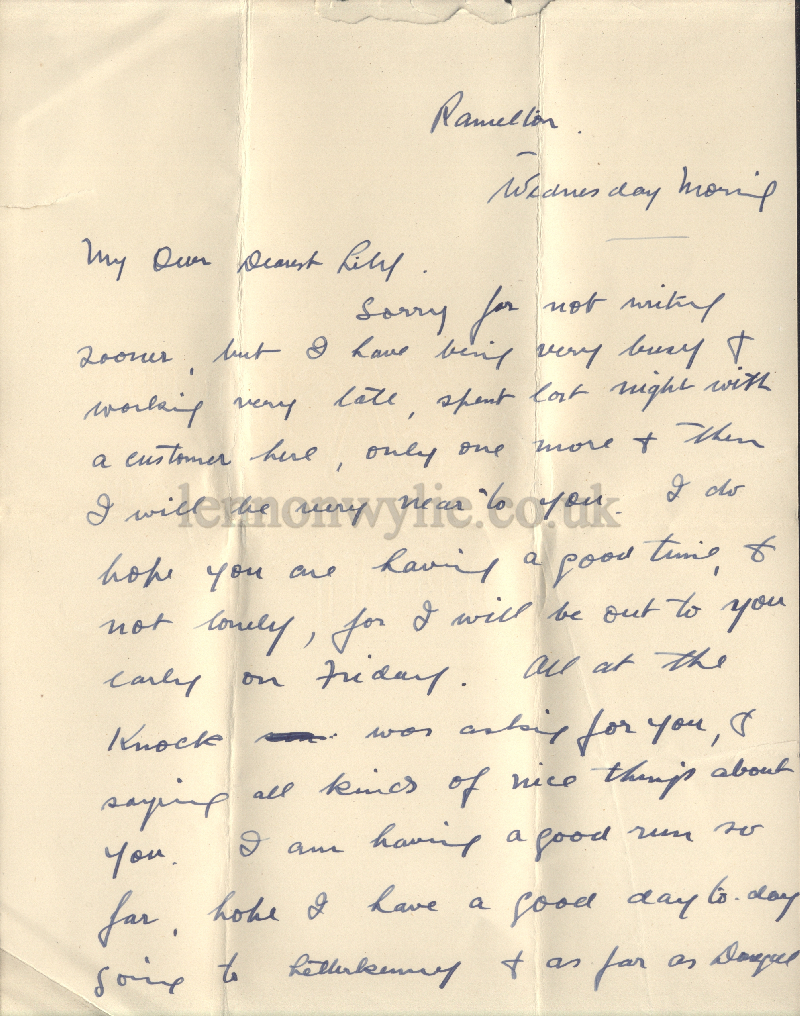 Ramelton.
Wednesday Morning
My Dear Dearest Lily.
Sorry for not writing
sooner, but I have being very busy &
working very late, spent last night with
a customer here, only one more & then
I will be very near to you. I do
lennonwylie.co.uk
hope you are having a good time, &
not lonely, for I will be out to you
early on Friday. All at the
Knock was asking for you, &
saying all kinds of nice things about
you. I am having a good run so
far, hope I have a good day to-day
going to Letterkenny & as far as